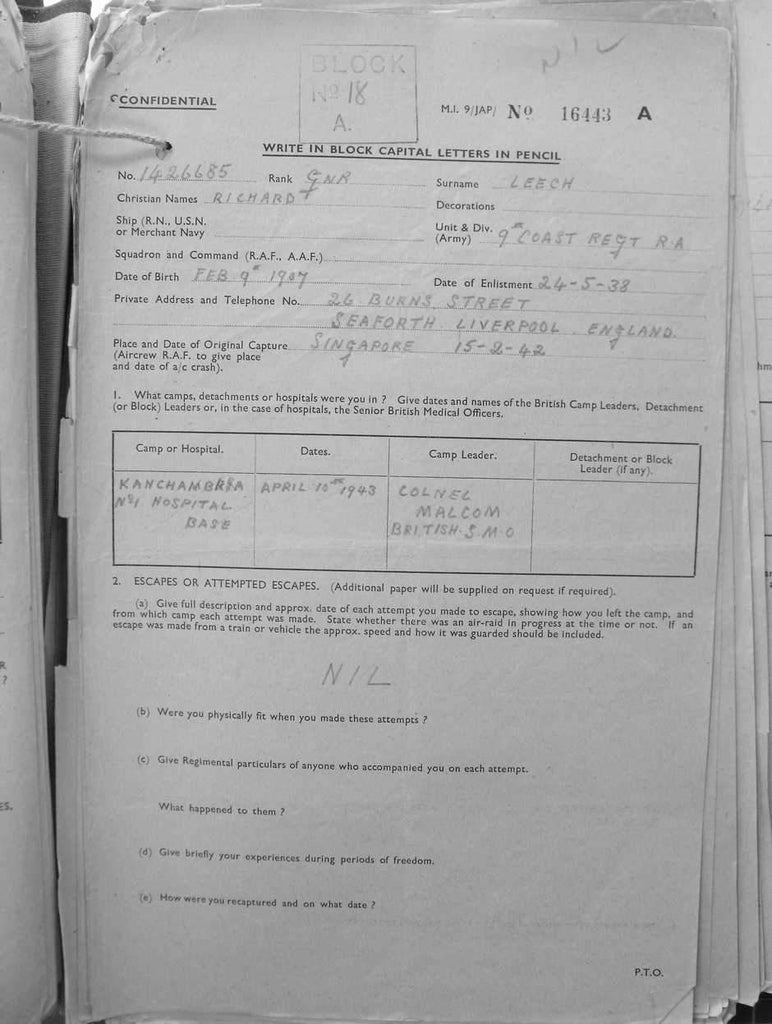 BLOCK
No 18
A.
NIL
CONFIDENTIAL
M.I. 9/JAP/ No 16443 A
WRITE IN BLOCK CAPITAL LETTERS IN PENCIL
No. 1426685 Rank GNR Surname LEECH
Christian Names RICHARD Decorations
Ship (R.N., U.S.N. or Merchant Navy
Unit & Div. (Army) 9th COAST REGT R.A
Squadron and Command (R.A.F., A.A.F.)
Date of Birth FEB 9th 1907 Date of Enlistment 24-5-38
Private Address and Telephone No. 26 BURNS STREET
SEAFORTH LIVERPOOL ENGLAND.
Place and Date of Original Capture SINGAPORE 15-2-42
(Aircrew R.A.F. to give place
and date of a/c crash).
1. What camps, detachments or hospitals were you in ? Give dates and names of the British Camp Leaders, Detachment
(or Block) Leaders or, in the case of hospitals, the Senior British Medical Officers.
Camp or Hospital. Dates. Camp Leader. Detachment or Block
Leader (if any).
KANCHAMBRIA APRIL 10th 1943 COLNEL
No1 HOSPITAL MALCOM
BASE BRITISH.S.M.O
2. ESCAPES OR ATTEMPTED ESCAPES. (Additional paper will be supplied on request if required).
(a) Give full description and approx. date of each attempt you made to escape, showing how you left the camp, and
from which camp each attempt was made. State whether there was an air-raid in progress at the time or not. If an
escape was made from a train or vehicle the approx. speed and how it was guarded should be included.
NIL
(b) Were you physically fit when you made these attempts ?
(c) Give Regimental particulars of anyone who accompanied you on each attempt.
What happened to them ?
(d) Give briefly your experiences during periods of freedom.
(e) How were you recaptured and on what date ?
P.T.O.